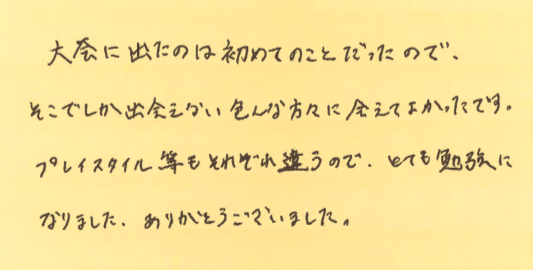 大会に出たのは初めてのことだったので、
そこでしか出会えない色んな方々に会えてよかったです。
プレイスタイル等もそれぞれ違うので、とても勉強に
なりました、ありがとうございました。